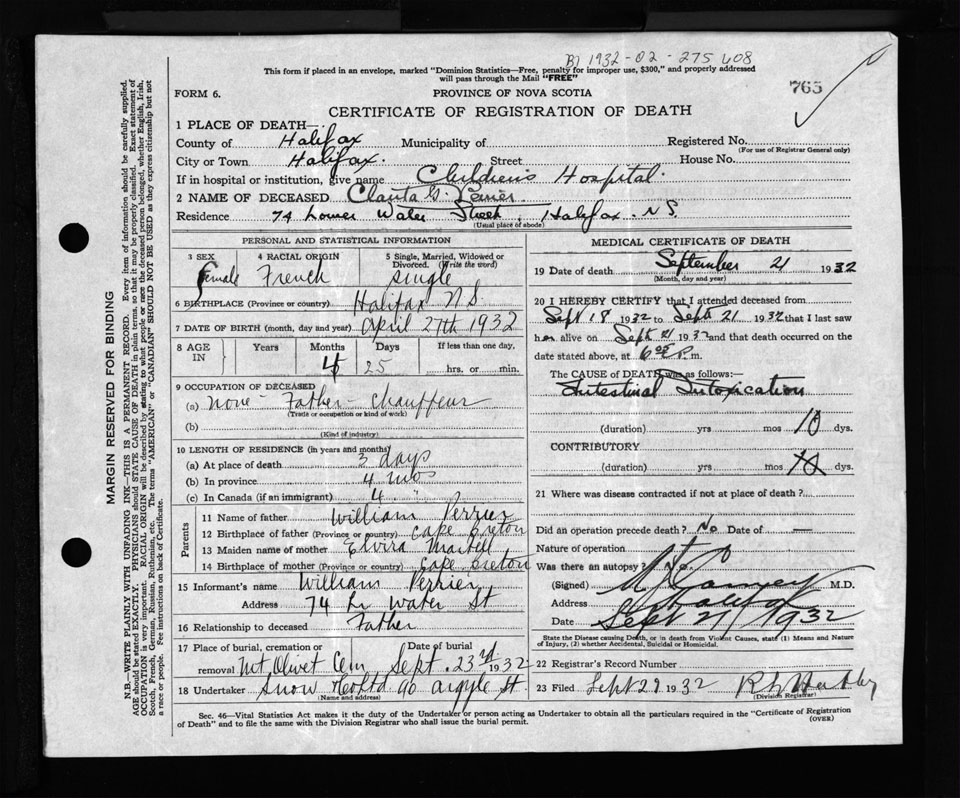 1932-02-275608
This form if placed in an envelope, marked "Dominion Statistics—Free, penalty for improper use, $300," and properly addressed
will pass through the Mail "FREE"
765
FORM 6.
PROVINCE OF NOVA SCOTIA
CERTIFICATE OF REGISTRATION OF DEATH
1 PLACE OF DEATH—
County of Halifax Municipality of Registered No.
(For use of Registrar General only)
City or Town Halifax. Street House No.
If in hospital or institution, give name Children's Hospital.
2 NAME OF DECEASED G.
Residence 74 Lower Water Street, Halifax N.S.
(Usual place of abode)
PERSONAL AND STATISTICAL INFORMATION
3 SEX 4 RACIAL ORIGIN 5 Single, Married, Widowed or
Divorced. (Write the word)
female French single
6 BIRTHPLACE (Province or country) Halifax N.S.
7 DATE OF BIRTH (month, day and year) April 27th 1932
8 AGE IN Years Months Days If less than one day,
4 25 hrs. or min.
9 OCCUPATION OF DECEASED
(a) none - Father - chauffeur
(Trade or occupation or kind of work)
(b)
(Kind of industry)
10 LENGTH OF RESIDENCE (in years and months)
(a) At place of death 3 days
(b) In province 4 mos
(c) In Canada (if an immigrant) 4 "
Parents
11 Name of father William Perrier
12 Birthplace of father (Province or country) Cape Breton
13 Maiden name of mother Elvira Martell
14 Birthplace of mother (Province or country) Cape Breton
15 Informant's name William Perrier
Address 74 Lr Water St
16 Relationship to deceased Father
17 Place of burial, cremation or Date of burial
removal Mt Olivet Cem Sept. 23rd 1932
18 Undertaker Snow & Co Ltd 90 Argyle St
(Name and address)
MEDICAL CERTIFICATE OF DEATH
19 Date of death September 21 1932
(Month, day and year)
20 I HEREBY CERTIFY that I attended deceased from
Sept 18 1932 to Sept 21 1932 that I last saw
her alive on Sept 21 1932 and that death occurred on the
date stated above, at 6 P.m.
The CAUSE OF DEATH was as follows:
Intestinal Intoxication
(duration) yrs mos 10 dys.
CONTRIBUTORY
(duration) yrs mos dys.
21 Where was disease contracted if not at place of death?
Did an operation precede death? No Date of —
Nature of operation
Was there an autopsy? No
(Signed) M.D.
Address Halifax
Date Sept 21/1932
State the Disease causing Death, or in death from Violent Causes, state (1) Means and Nature
of Injury, (2) whether Accidental, Suicidal or Homicidal.
22 Registrar's Record Number
23 Filed Sept 29 1932
(Division Registrar)
Sec. 46—Vital Statistics Act makes it the duty of the Undertaker or person acting as Undertaker to obtain all the particulars required in the "Certificate of Registration
of Death" and to file the same with the Division Registrar who shall issue the burial permit.
(OVER)
MARGIN RESERVED FOR BINDING
N.B.—WRITE PLAINLY WITH UNFADING INK—THIS IS A PERMANENT RECORD. Every item of information should be carefully supplied.
AGE should be stated EXACTLY. PHYSICIANS should STATE CAUSE OF DEATH in plain terms, so that it may be properly classified. Exact statement of
OCCUPATION is very important. RACIAL ORIGIN will be described by stating to what people or race the deceased person belonged, whether English, Irish,
Scotch, French, German, Russian, Ruthenian, etc. The terms "AMERICAN" or "CANADIAN" SHOULD NOT BE USED as they express citizenship but not
a race or people. Fee instructions on back of Certificate.